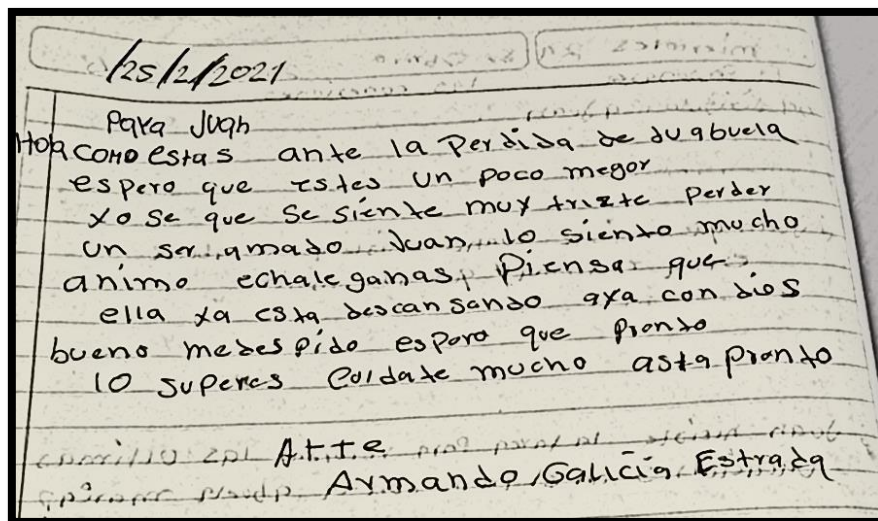 /25/2/2021
Para Juan
Hola como estas ante la Perdida de su abuela
espero que estes un poco megor
Yo se que se siente muy trizte perder
un ser amado Juan, lo siento mucho
animo echale ganas, Piensa que
ella ya esta descansando aya con dios
bueno medespido espero que pronto
lo superes Cuidate mucho asta pronto
A.t.t.e
Armando Galicia Estrada